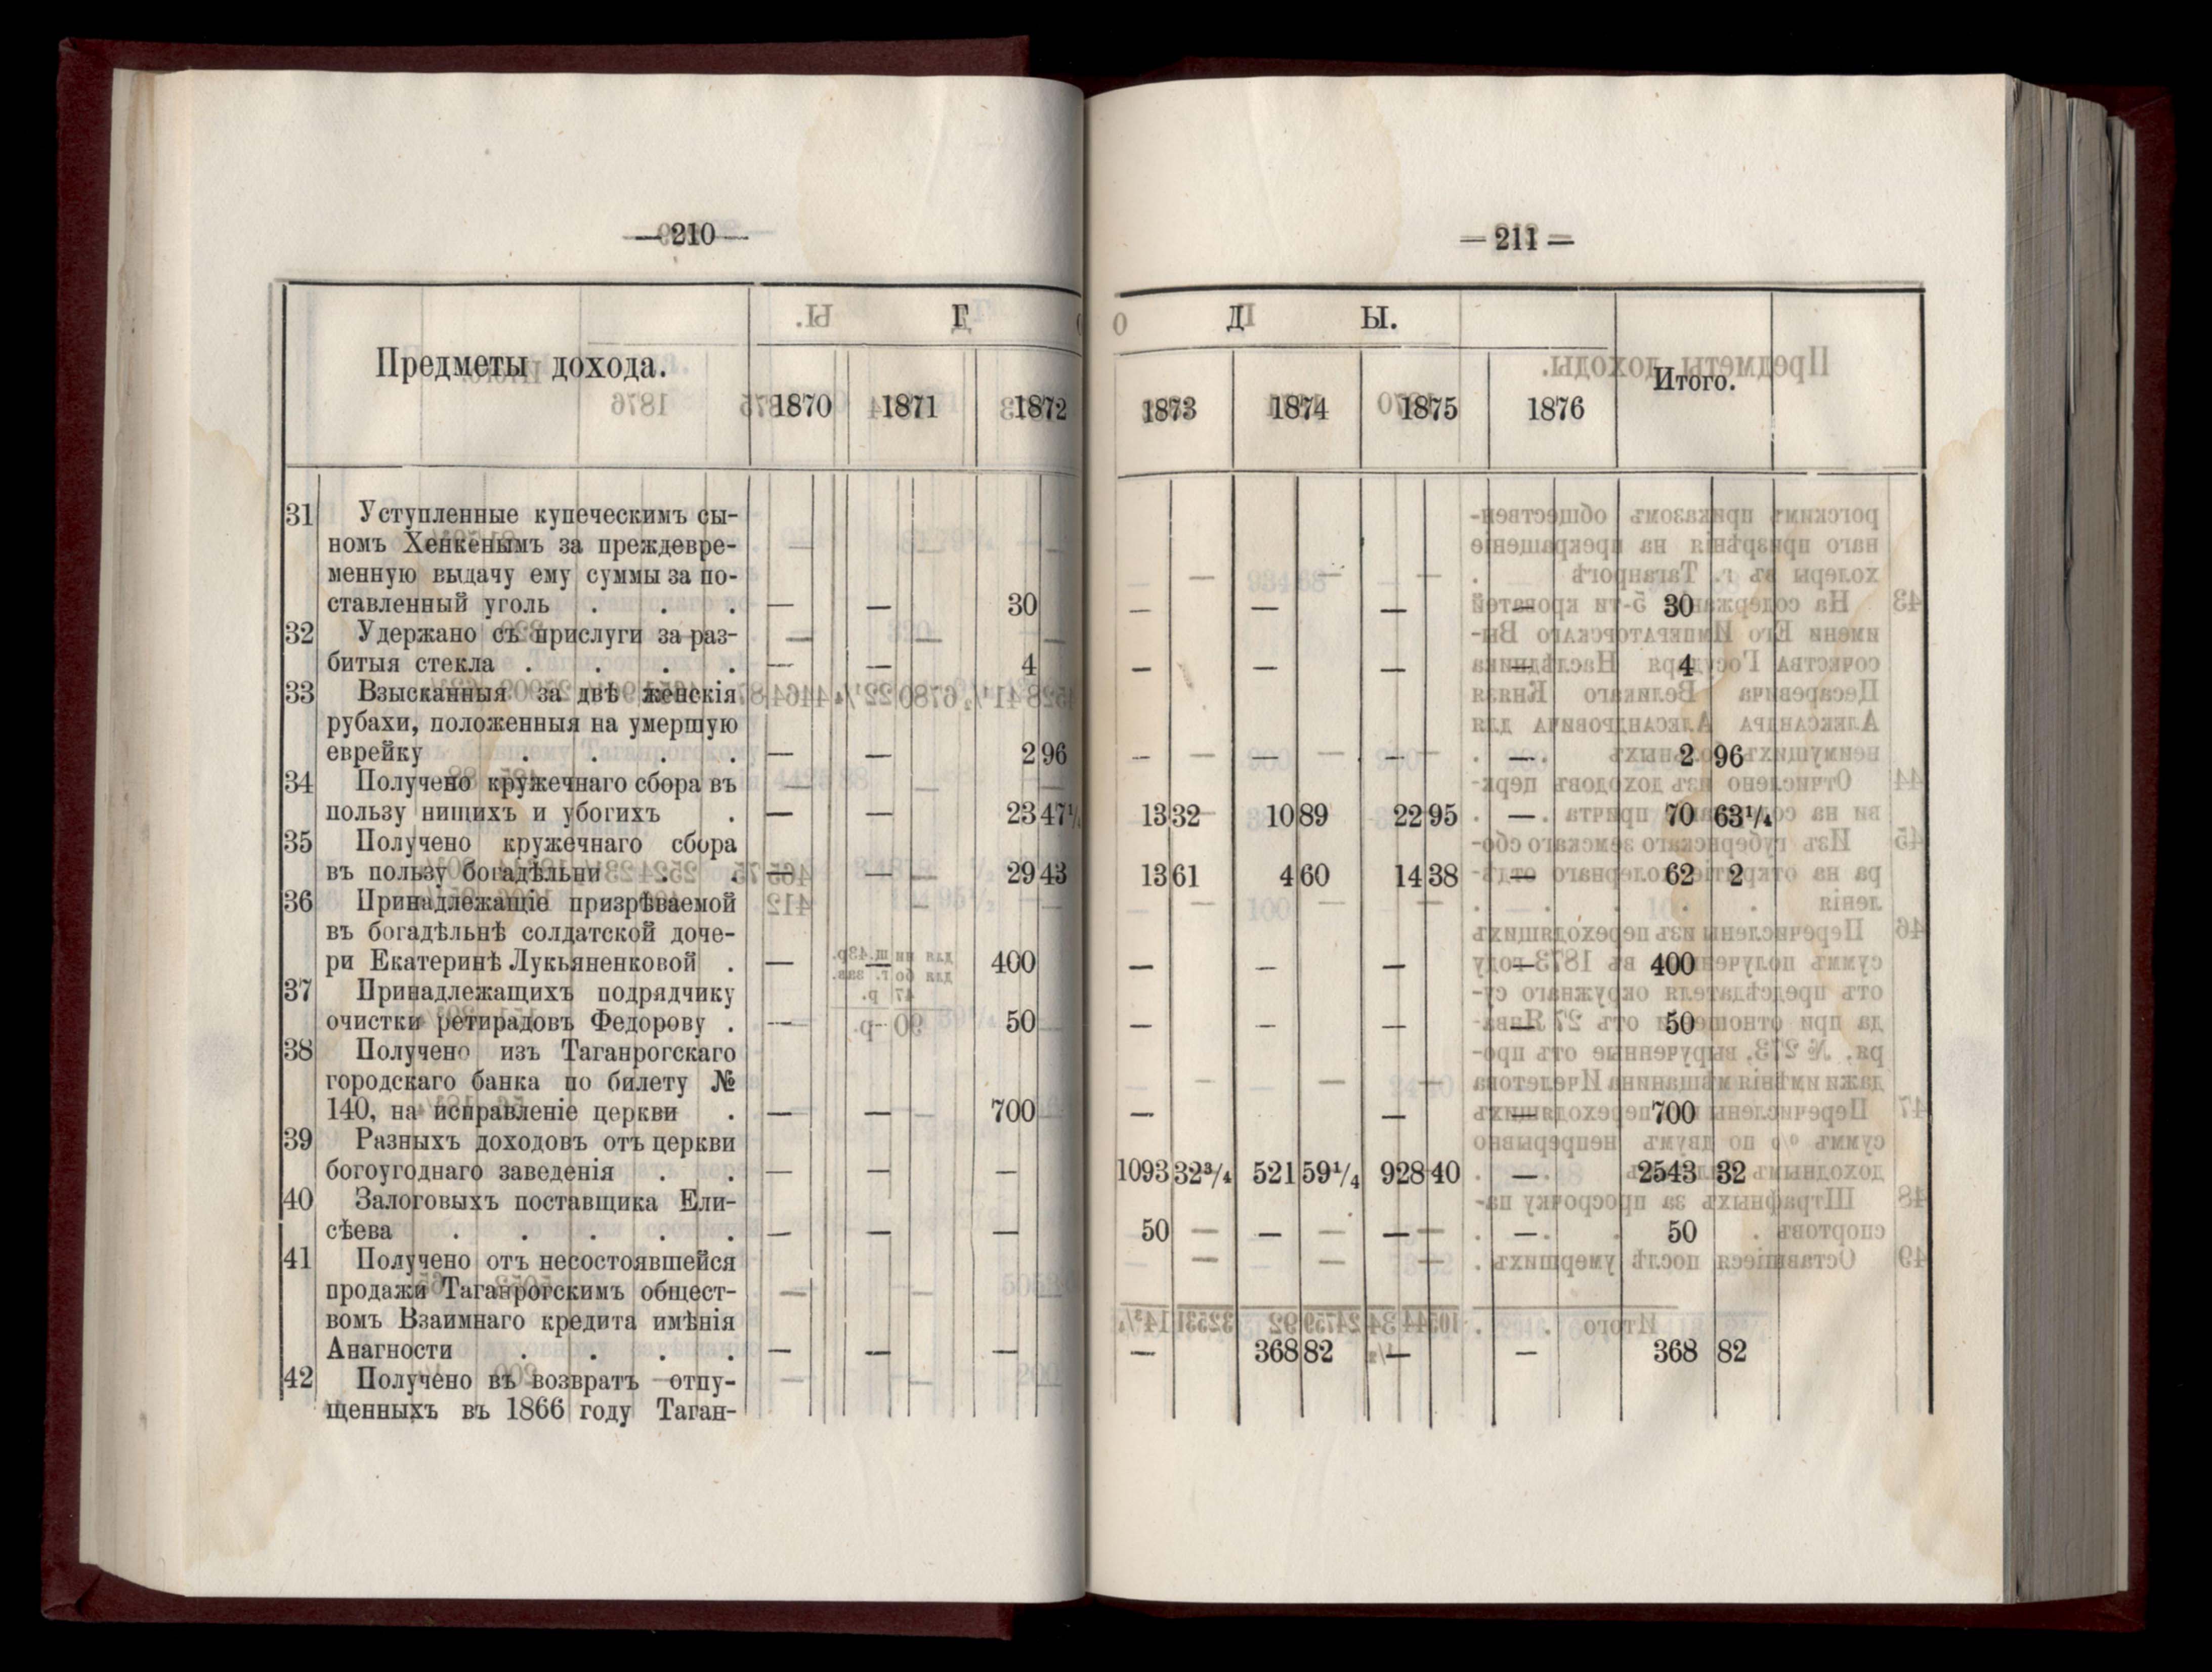 — 210 —
Г
Предметы дохода.
1870 1871 1872
31 Уступленные купеческимъ сы-
номъ Хенкенымъ за преждевре-
менную выдачу ему суммы за по-
ставленный уголь . . . — — 30
32 Удержано съ прислуги за раз-
битыя стекла . . . . — — 4
33 Взысканныя за двѣ женскія
рубахи, положенныя на умершую
еврейку . . . . — — 2 96
34 Получено кружечнаго сбора въ
пользу нищихъ и убогихъ . — — 23 47
35 Получено кружечнаго сбора
въ пользу богадѣльни . . — — 29 43
36 Принадлежащіе призрѣваемой
въ богадѣльнѣ солдатской доче-
ри Екатеринѣ Лукьяненковой . — — 400
37 Принадлежащихъ подрядчику
очистки ретирадовъ Федорову . — 50
38 Получено изъ Таганрогскаго
городскаго банка по билету №
140, на исправленіе церкви . — — 700
39 Разныхъ доходовъ отъ церкви
богоугоднаго заведенія . . — — —
40 Залоговыхъ поставщика Ели-
сѣева . . . . . — — —
41 Получено отъ несостоявшейся
продажи Таганрогскимъ общест-
вомъ Взаимнаго кредита имѣнія
Анагности . . . . — — —
42 Получено въ возвратъ отпу-
щенныхъ въ 1866 году Таган-
— 211 —
О Д Ы.
Итого.
1873 1874 1875 1876
— — — — 30
— — — — 4
— — — — 2 96
13 32 10 89 22 95 — 70 63¼
13 61 4 60 14 38 — 62 2
— — — — 400
— — — — 50
— — — 700
1093 32¾ 521 59¼ 928 40 — 2543 32
50 — — — 50
— 368 82 — — 368 82